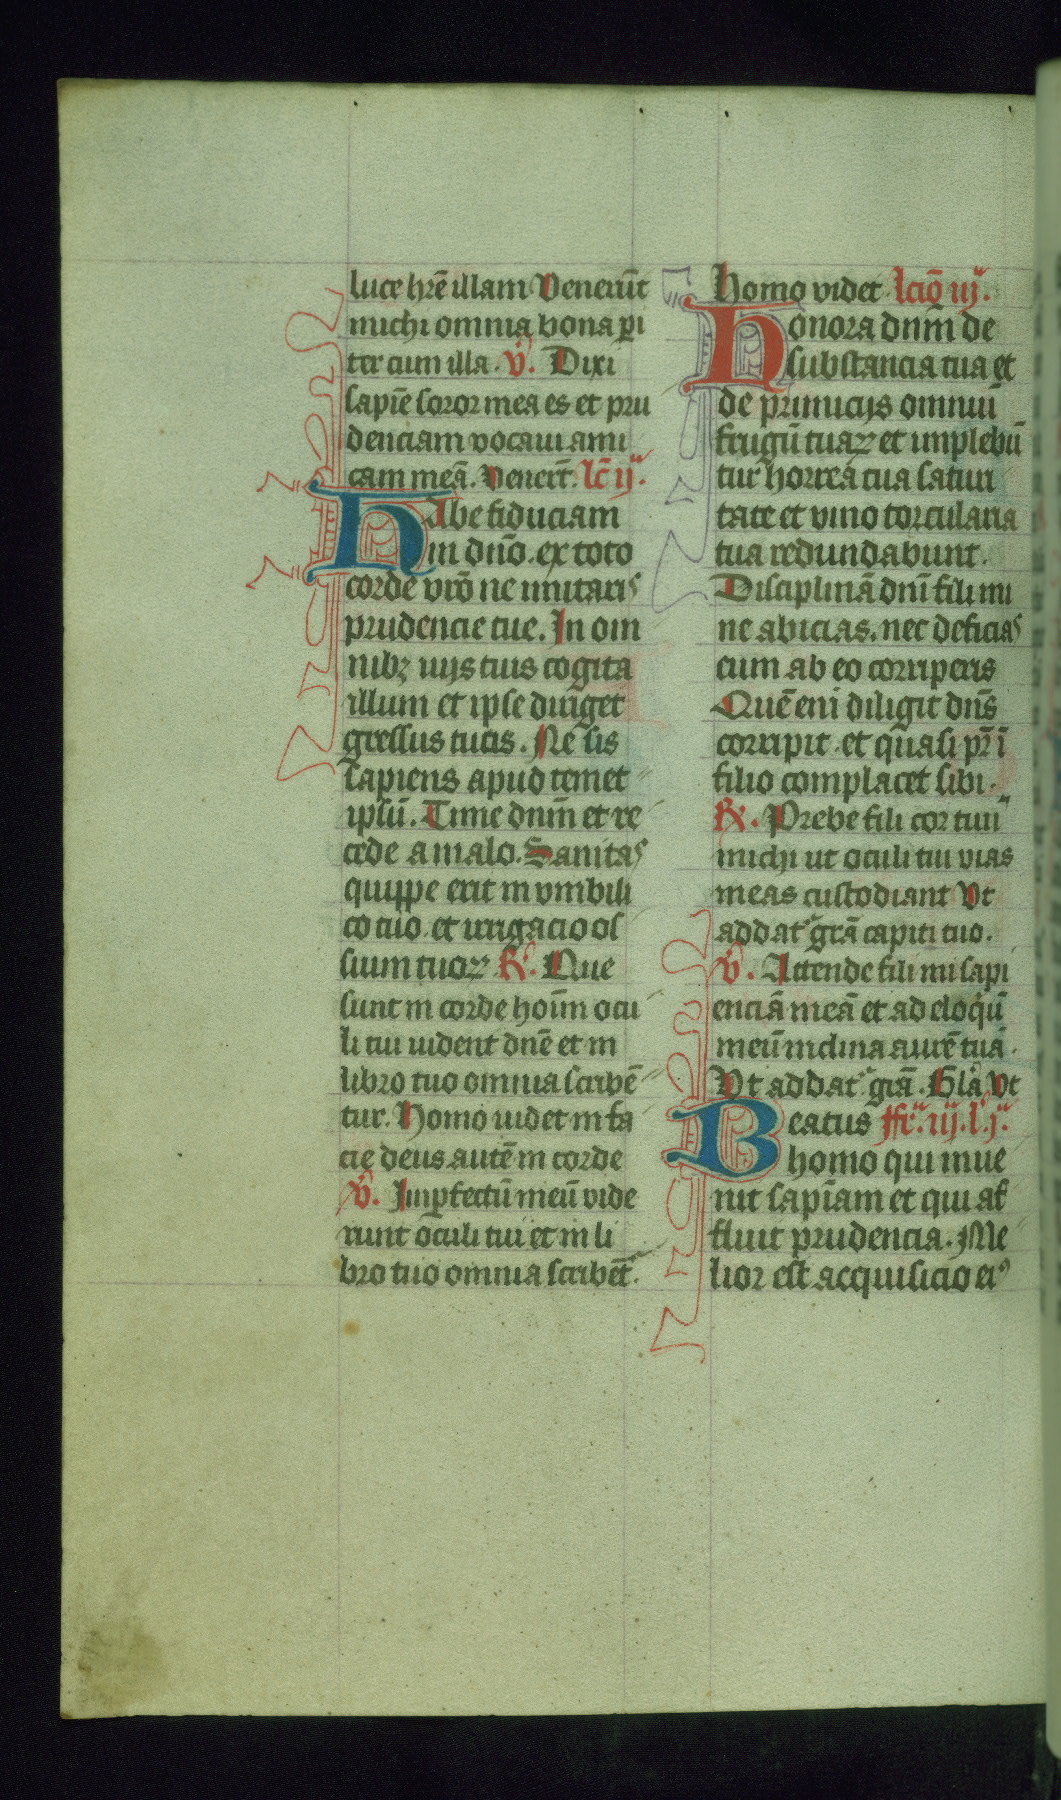 luce hr̄e illam Venerūt
michi omnia bona ꝑi
ter cum illa. V̄. Dixi
sapīe soror mea es et pru
denciam vocaui ami
cam meā. Venerūt. Lc̄ ij.
Habe fiduciam
in dn̄o. ex toto
corde vr̄o ne initaris
prudencie tue. In om
nibꝫ uijs tuis cogita
illum et ipse diriget
gressus tuos. Ne sis
sapiens apud temet
ipsū. Time dnm̄ et re
cede a malo. Sanitas
quippe erit in vmbili
co tuo. et irrigacio os
sium tuoꝝ. R̄. Que
sunt in corde hoīm ocu
li tui uident dn̄e et in
libro tuo omnia scribē
tur. Homo uidet in fa
cie deus autē in corde
V̄. Imꝑfectū meū vide
runt oculi tui et in li
bro tuo omnia scribēt.
homo videt lcīo iij.
Honora dnm̄ de
substancia tua et
de primicijs omniū
frugū tuaꝝ et implebū
tur horrea tua saturi
tate et vino torcularia
tua redundabunt.
Disciplinā dn̄i fili mi
ne abicias. nec deficias
cum ab eo corriperis
Quē eni diligit dn̄s
corripit. et quasi pr̄ ī
filio complacet sibi.
R̄. Prebe fili cor tuū
michi ut oculi tui vias
meas custodiant Vt
addat᷑ grā capiti tuo.
V̄. Attende fili mi sapi
enciā meā et ad eloqū
meū inclina aurē tuā.
Vt addat᷑ grā. Glā Vt
Beatus ffr̄. iij. l. j.
homo qui inue
nit sapīam et qui af
fluit prudencia. Me
lior est acquisicio eiꝰ